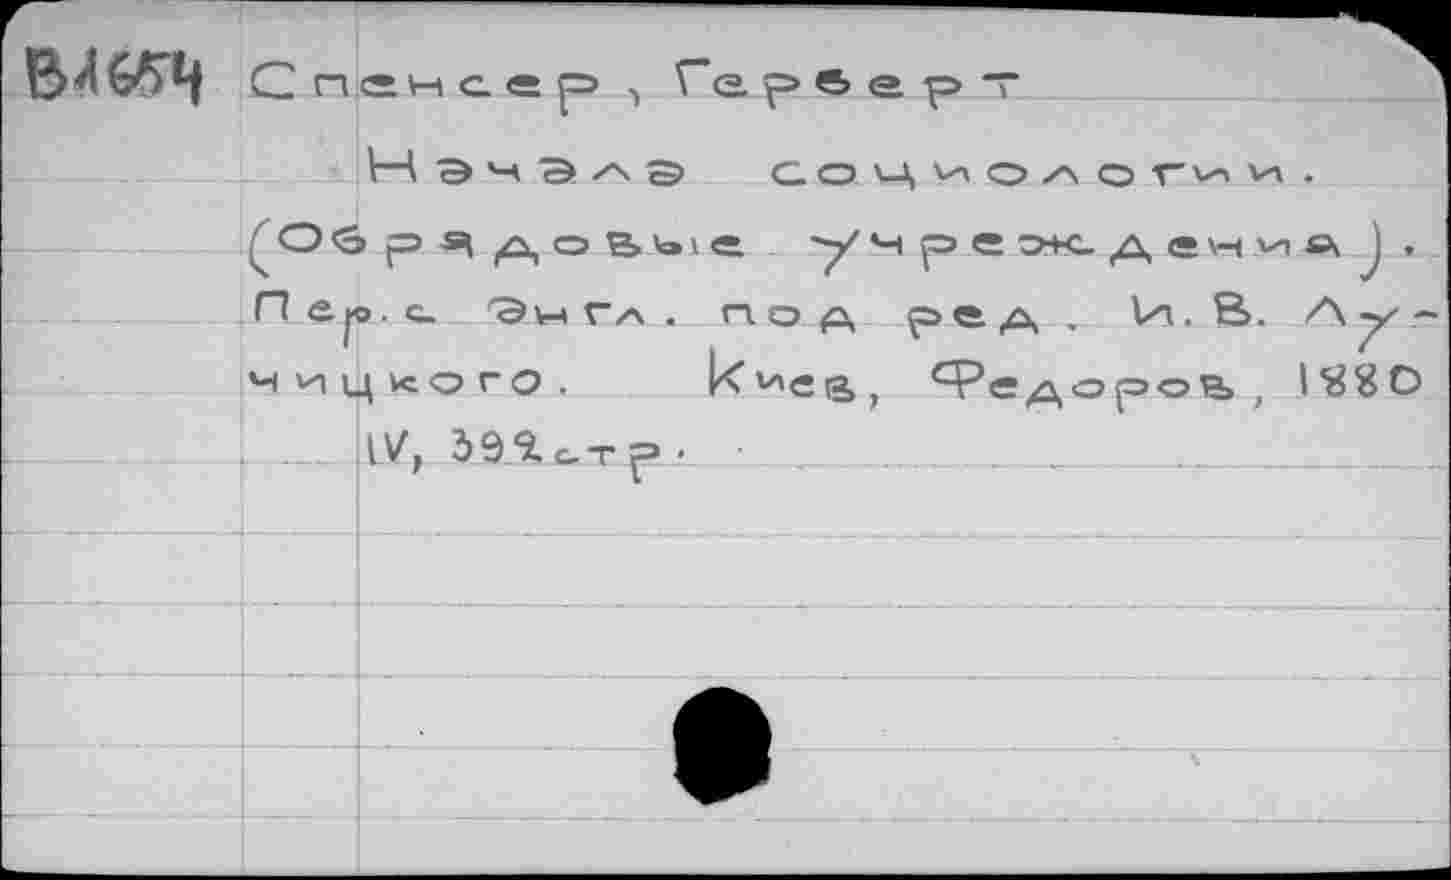 B1654 Спенсер, Герберт
Начала социологии.
(Обрядовые учреждения).
Пер. с. Энгл. под ред. И. В. Лу-
чицкого. Киев, Федоров, 1880
IV, 392 стр.